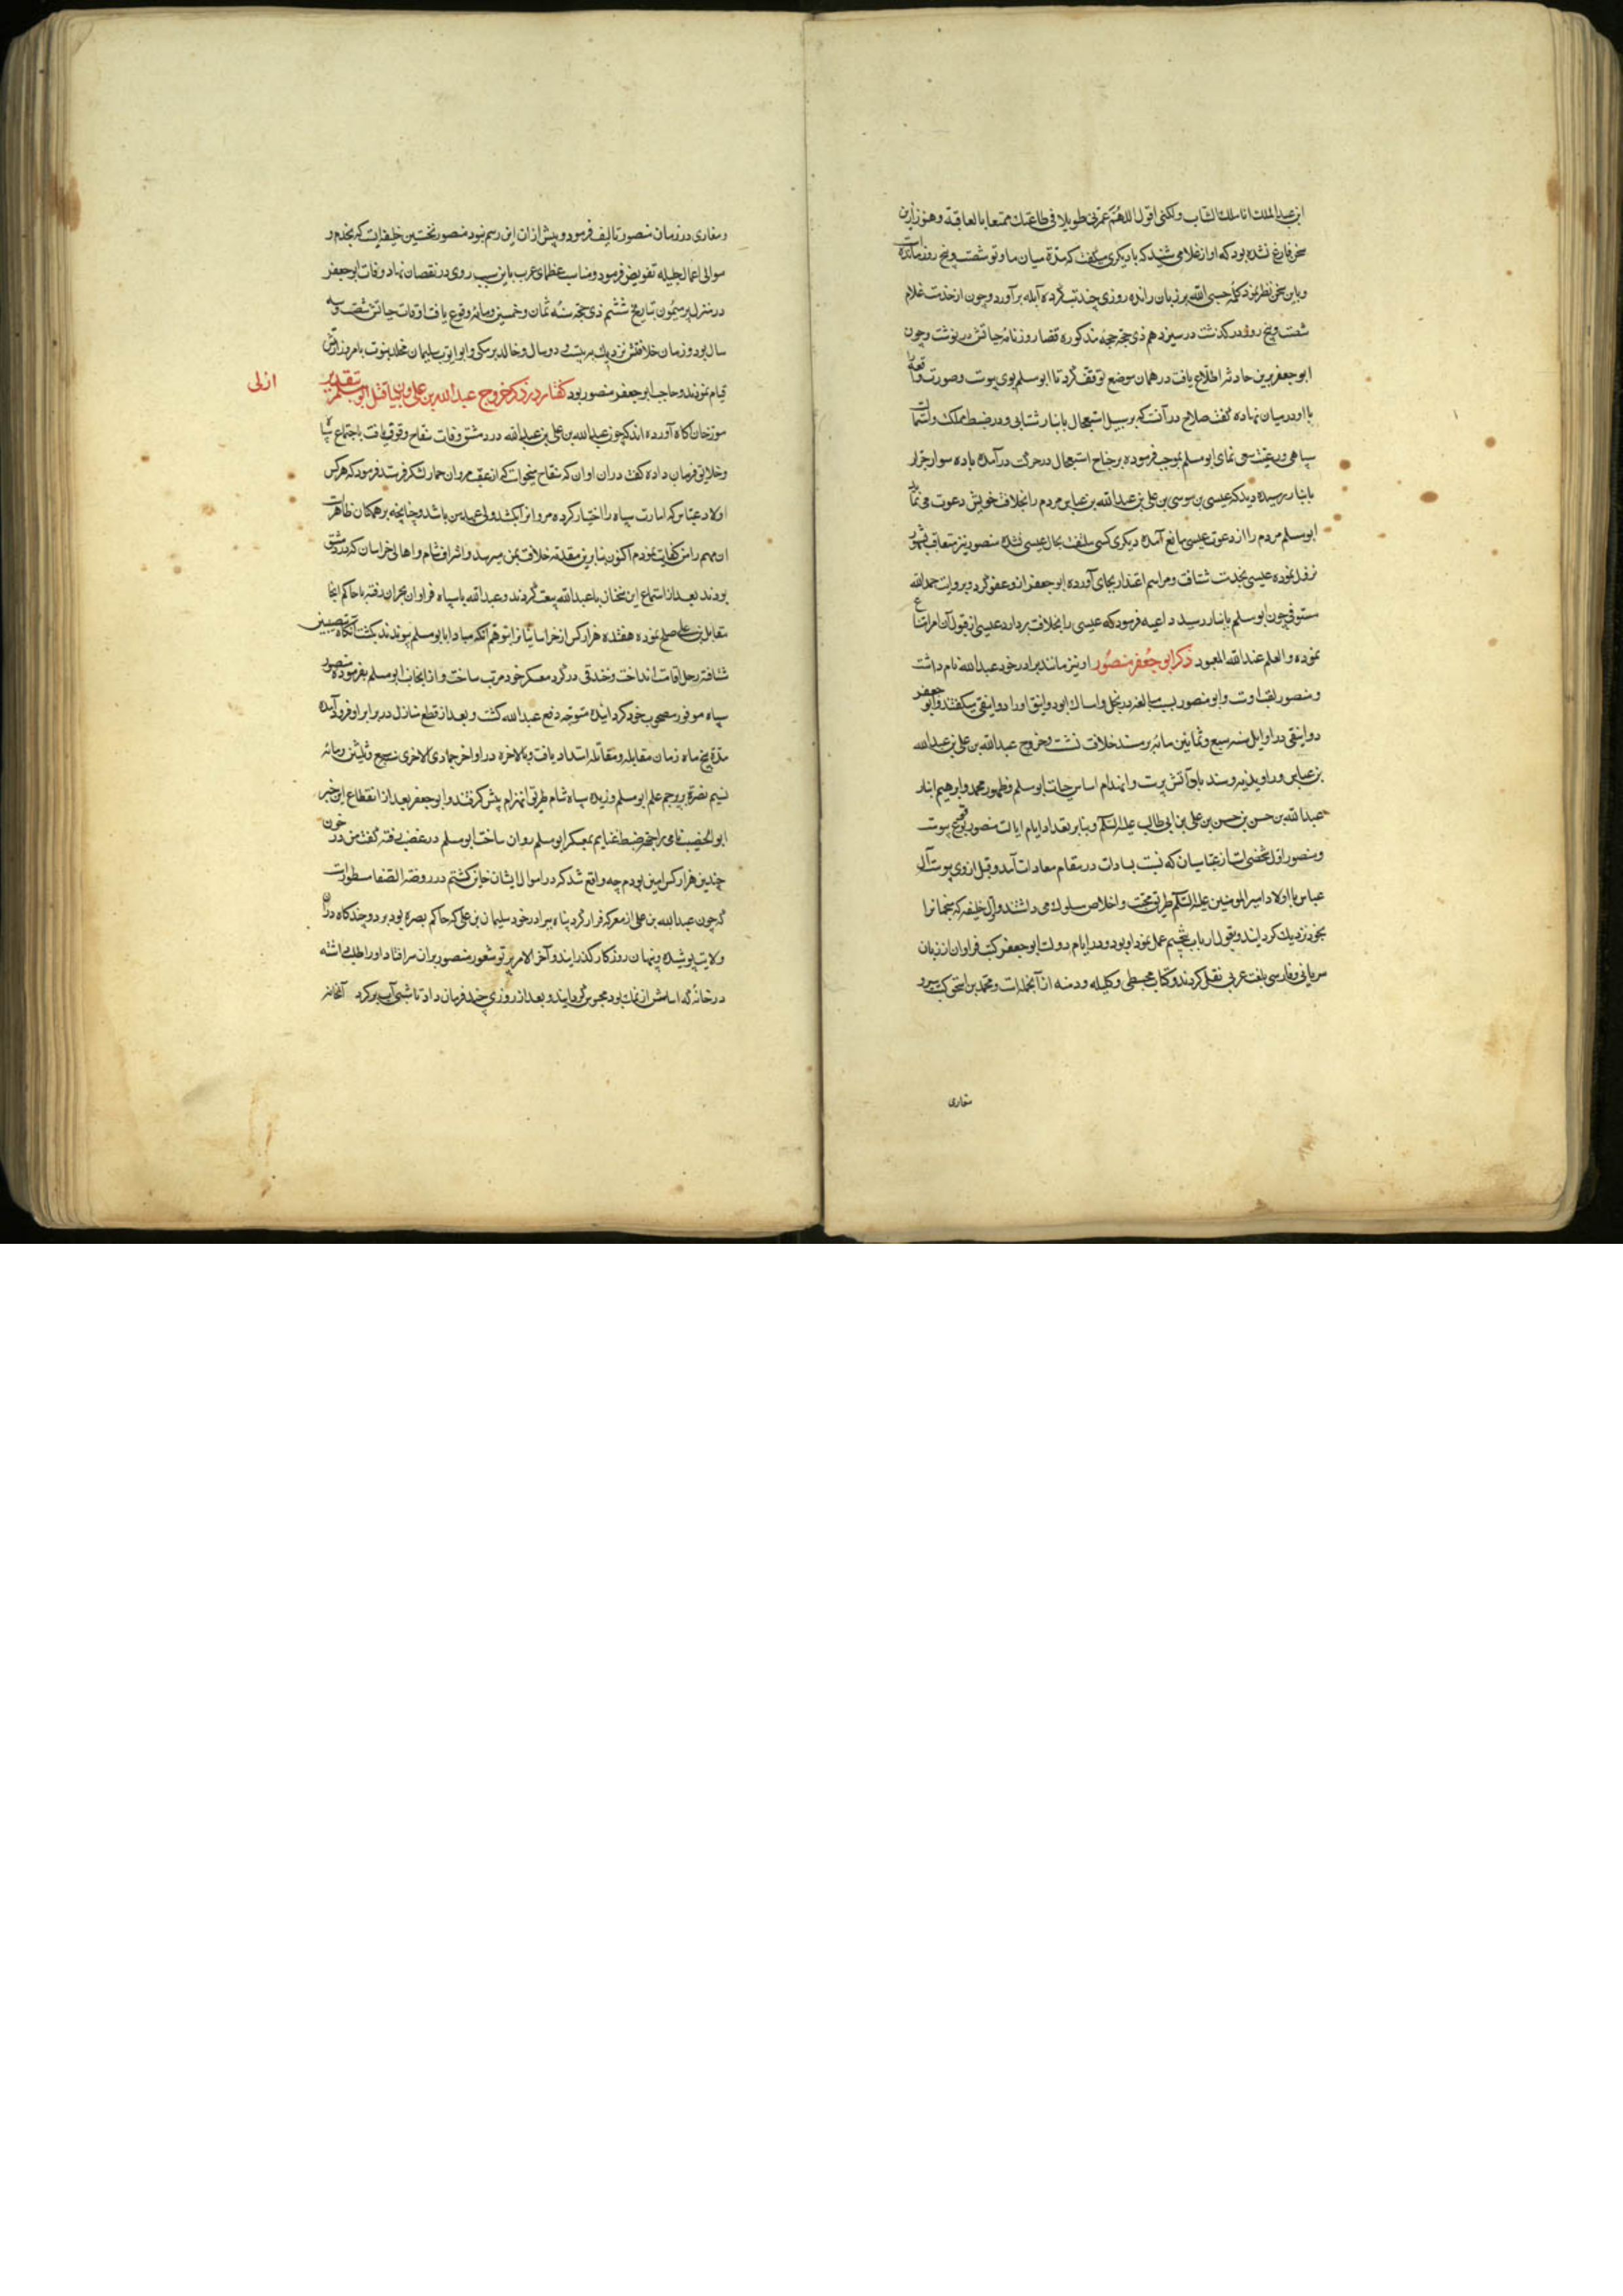 ابن عبد الملك انا ملك الشاب ولكنى اقول اللهم عمرنى طويلا فى طاعتك ممتعا بالعاقبة وهنوز ازین
سخن فارغ نشده بود که آواز غلامی شنید که با دیگری میگفت که مدة میان ما و تو شصت و پنج روز مانده است
و باین سخن تطیر نموده کلمه حسبی الله بر زبان رانده روزی چند تب کرده آبله برآورد و چون از خدمت غلام
شصت و پنج روز درگذشت در سیزدهم ذی حجه حجه مذکوره قضا روزنامه حیاتش در نوشت و چون
ابو جعفر برین حادثه اطلاع یافت در همان موضع توقف کرد تا ابو مسلم بوی پیوست و صورت واقعه را
با او در میان نهاده گفت صلاح در آنست که بر سبیل استعجال بانبار شتابی و در ضبط مملکت و استمالت
سپاهی و رعیت سعی نمای ابو مسلم بموجب فرموده بر جناح استعجال در حرکت درآمده با ده سوار جرار
بانبار رسیده دید که عیسی بن موسی بن علی بن عبد الله بن عباس مردم را بخلافت خویش دعوت می نماید
ابو مسلم مردم را از دعوت عیسی مانع آمده دیگری کسی ملتفت بحال عیسی نشده منصور نیز متعاقب بشهر
نزول نموده عیسی بخدمت شتافت و مراسم اعتذار بجای آورده ابو جعفر ازو عفو کرد و بروایت حمد الله
مستوفی چون ابو مسلم بانبار رسید داعیه فرمود که عیسی را بخلافت بردارد عیسی از قبول آن امر امتناع
نموده والعلم عند الله المعبود ذکر ابو جعفر منصور او نیز مانند برادر خود عبد الله نام داشت
و منصور لقب اوست و ابو منصور بسبب مبالغه در بخل و امساك ابو دوانیق او را دوانیقی میگفتند و ابو جعفر
دوانیقی در اوایل سنه سبع و ثمانین مائه بر مسند خلافت نشست و خروج عبد الله بن علی بن عبد الله
بن عباس و راوندیه و سندباد آتش پرست و انهدام اساس حیات ابو مسلم و ظهور محمد و ابرهیم ابنای
عبد الله بن حسن بن حسن بن علی بن ابی طالب علیه السلم و بنا بر بغداد ایام ایالت منصور بوقوع پیوست
و منصور اول شخصی است از عباسیان که نسبت بسادات در مقام معادات آمد و قبل از وی پیوسته آل
عباس با اولاد امیر المومنین علیه السلم طریق محبت و اخلاص سلوك می داشتند و اول خلیفه که منجمانرا
بخود نزدیك گردانید و بقول ارباب تنجیم عمل نمود او بود و در ایام دولت ابو جعفر کتب فراوان از زبان
سریانی و فارسی بلغت عربی نقل کردند و کتاب مجسطی و کلیله و دمنه از آنجمله است و محمد بن اسحق کتب سیر و
مغازی
و مغازی در زمان منصور تالیف فرمود و پیش از ان این رسم نبود منصور نخستین خلیفه ایست که بخدم و
موالی اعمال جلیله تفویض فرمود و مناصب عظمای عرب باین سبب روی در نقصان نهاد وفات ابو جعفر
در منزل بیر میمون بتاریخ ششم ذی حجه سنه ثمان و خمسین و مائه وقوع یافت اوقات حیاتش شصت و سه
سال بود و زمان خلافتش نزدیك به بیست و دو سال و خالد برمکی و ابو ایوب سلیمان مخلد بنوبت بامر وزارتش
قیام نمودند و حاجب ابو جعفر منصور بود گفتار در ذکر خروج عبد الله بن علی و بیان قتل ابو مسلم بتقدیر
ازلی
مورخان آگاه آورده اند که چون عبد الله بن علی بن عبد الله در دمشق وفات سفاح وقوف یافت باجتماع سپاه
و خلایق فرمان داده گفت دران اوان که سفاح میخواست که از عقب مروان حمار لشکر فرستد فرمود که هرکس
اولاد عباس که امارت سپاه را اختیار کرده مروانرا بکشد ولی عهد من باشد و چنانچه بر همکنان ظاهرست
ان مهم را من کفایت نمودم اکنون بنا برین مقدمه خلافت بمن میرسد و اشراف شام و اهالی خراسان که در دمشق
بودند بعد از استماع این سخنان با عبد الله بیعت کردند و عبد الله با سپاه فراوان بحران رفته با حاکم انجا
مقاتل بن علی صلح نموده هفده هزار کس از خراسانیانرا بتوهم آنکه مبادا بابو مسلم پیوندند بکشت آنگاه بنصیبین
شتافته رحل اقامت انداخت و خندقی در گرد معسکر خود مرتب ساخت و از انجانب ابو مسلم بفرموده منصور
سپاه موفور مصحوب خود گردانیده متوجه دفع عبد الله گشت و بعد از قطع منازل در برابر او فرود آمده
مدة پنج ماه زمان مقابله و مقاتله امتداد یافت و بالاخره در اواخر جمادی الاخری سبع و ثلثین و مائه
نسیم نصرة بر پرچم علم ابو مسلم وزیده سپاه شام طریق انهزام پیش گرفتند و ابو جعفر بعد از انقطاع این خبر
ابو الخصیب نامی را بجهة ضبط غنایم بمعسکر ابو مسلم روان ساخت ابو مسلم در غضب رفته گفت من در خون
چندین هزار کس امین بودم چه واقع شد که در اموال ایشان خاین گشتم در روضة الصفا مسطورست
که چون عبد الله بن علی از معرکه فرار کرد پناه ببرادر خود سلیمان بن علی که حاکم بصره بود برد و چندگاه دران
ولایت پوشیده و پنهان روزگار گذرانید و آخر الامر پرتو شعور منصور بران سر افتاد او را طلب داشته
در خانه که اساسش از نمك بود محبوس گردانید و بعد از روزی چند فرمان داد تا شبی آب بر گرد آنخانه